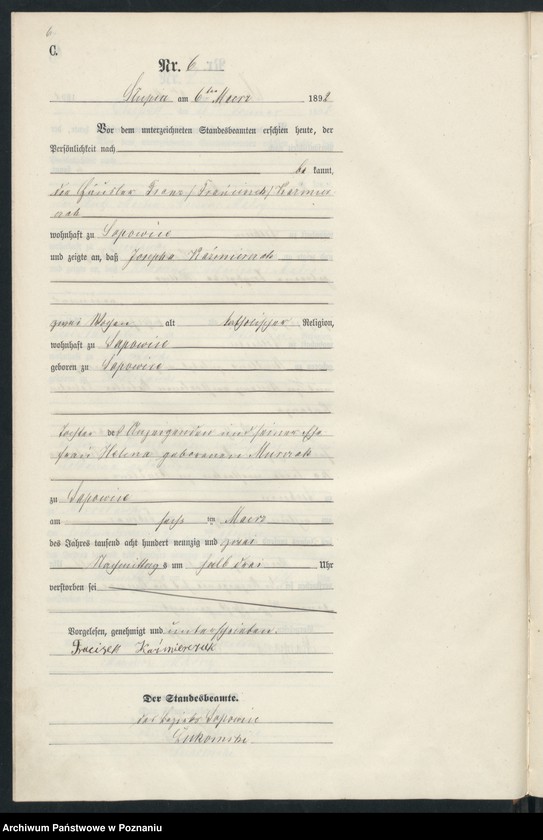 6
C.
Nr. 6
Slupia am 6ten Maerz 1892
Vor dem unterzeneten Standesbeamten erschien heute, der
Persönlichkeit nach
be kannt,
der Häusler Franz /Franciszek/ Kazmier
czak
wohnhaft zu Sapowice
und zeigte an, daß Josepha Kaźmierczak
zwei Wochen alt katholischer Religion,
wohnhaft zu Sapowice
geboren zu Sapowice
Tochter des Anzeigenden und seiner Ehe
frau Helena geborenen Murczak
zu Sapowice
am sechs ten Maerz
des Jahres tausend acht hundert neunzig und zwei
Nachmittag s um halb drei Uhr
verstorben sei
Vorgelesen, genehmigt und unterschrieben.
Kaźmierczak
Der Standesbeamte.
des Bezirks Sapowice